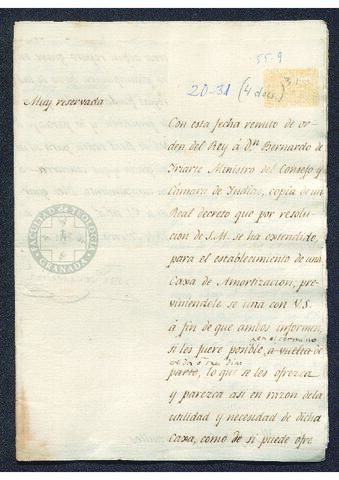 55-9
20-31 (4 docs.)
Muy reservada
Con esta fecha remito de or-
den del Rey á Dn. Bernardo de
Iriarte Ministro del Consejo y
Cámara de Indias, copia de un
Real decreto que por resolu-
cion de S.M. se ha extendido,
para el establecimiento de una
Caxa de Amortizacion, pre-
viniendole se una con V.S.
á fin de que ambos informen,
si les fuere posible, a vuelta de
de dia ó tres dias
parte, lo que se les ofrezca
y parezca asi en razon de la
utilidad y necesidad de dicha
Caxa, como de si puede ofre
FACULTAD DE TEOLOGIA
GRANADA